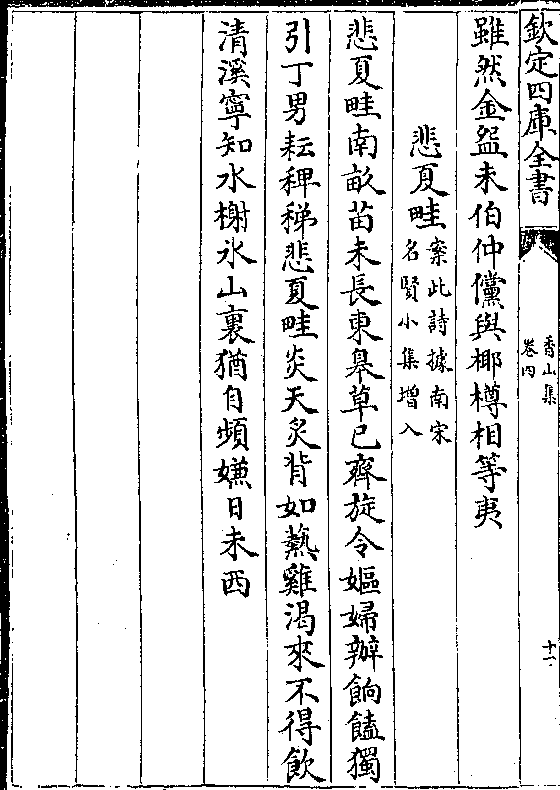 欽定四庫全書
香山集
卷四
十一
雖然金盌未伯仲儻與椰樽相等夷
悲夏畦
案此詩據南宋
名賢小集增入
悲夏畦南畝苗未長東皋草已齊旋令嫗婦辦餉饁獨
引丁男耘稗稊悲夏畦炎天炙背如蒸雞渴來不得飲
清溪寧知水榭氷山裏猶自頻嫌日未西